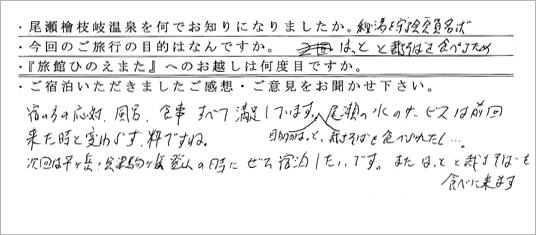 ・尾瀬檜枝岐温泉を何でお知りになりましたか。秘湯を守る会会員名簿
・今回のご旅行の目的はなんですか。はっとと裁ちそばを食べるため
・『旅館ひのえまた』へのお越しは何度目ですか。
・ご宿泊いただきましたご感想・ご意見をお聞かせ下さい。
宿の方の応対、風呂、食事すべて満足しています。尾瀬の水のサービスは前回
来た時と変わらず、粋ですね。目的のはっと、裁ちそばも食べられたし…。
次回は平ヶ岳・会津駒ヶ岳登山の時にぜひ宿泊したいです。またはっとと裁ちそばを
食べに来ます